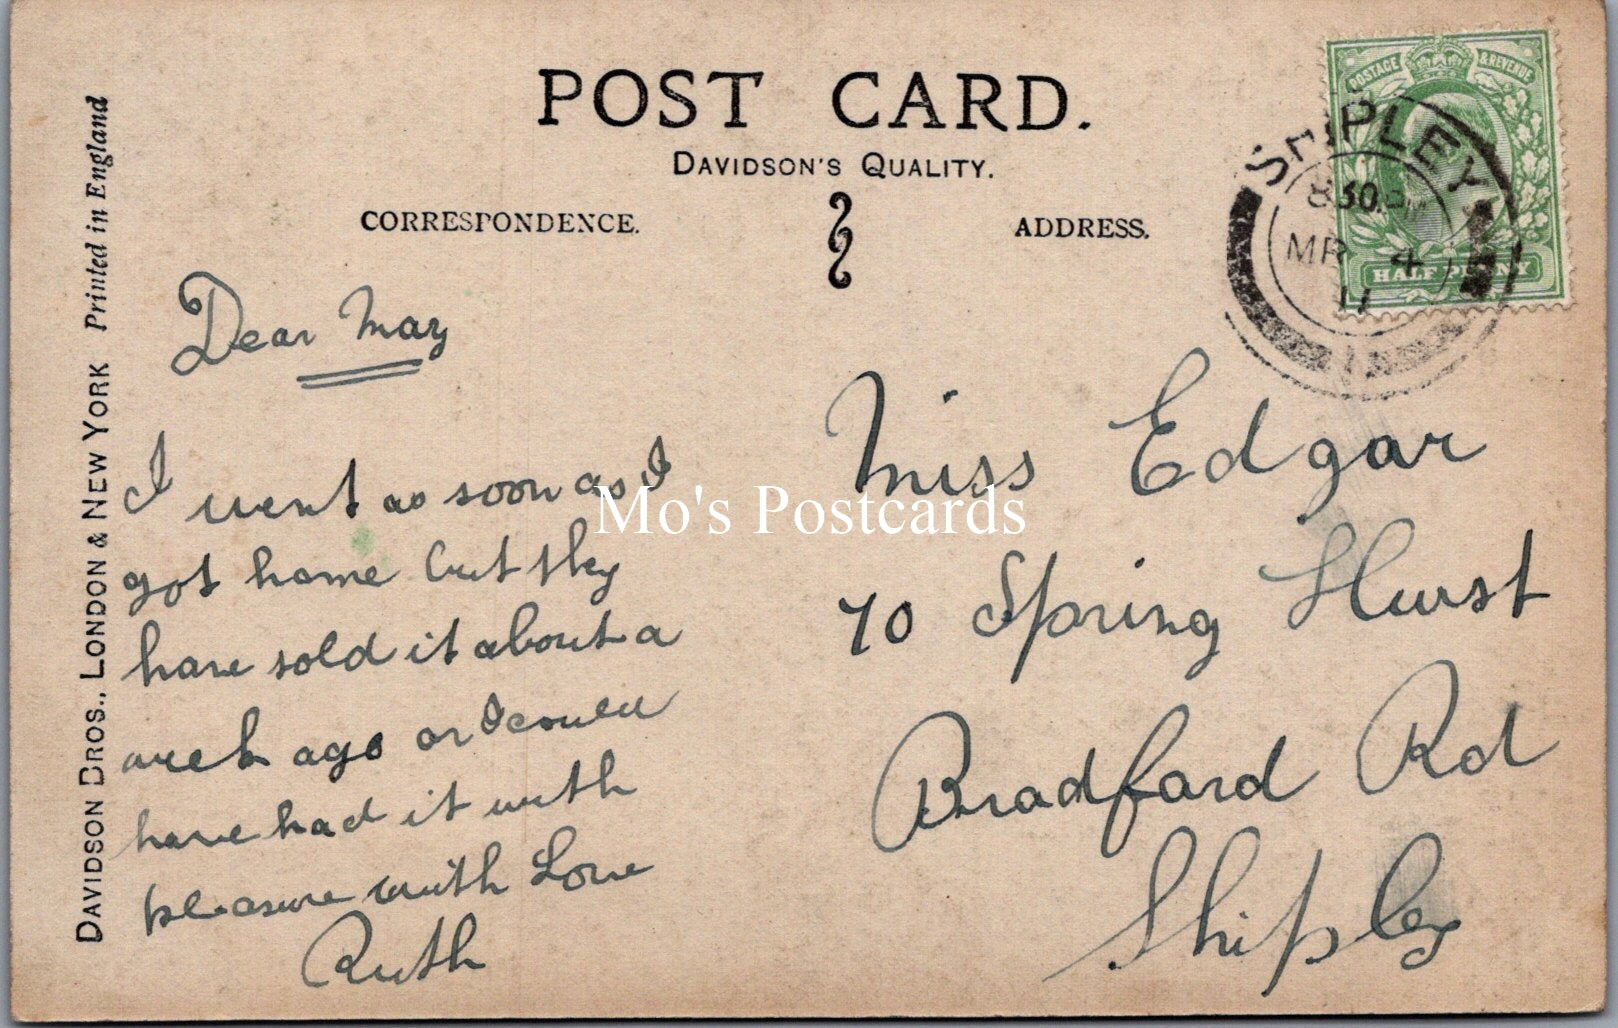 POST CARD.
DAVIDSON'S QUALITY.
CORRESPONDENCE.
ADDRESS.
DAVIDSON BROS., LONDON & NEW YORK Printed in England
POSTAGE & REVENUE
HALF PENNY
SHIPLEY
8 30 PM
MR 4
11
Dear May
I went as soon as I
got home but they
have sold it about a
week ago or I could
have had it with
pleasure with Love
Ruth
Miss Edgar
70 Spring Hurst
Bradford Rd
Shipley
Mo's Postcards